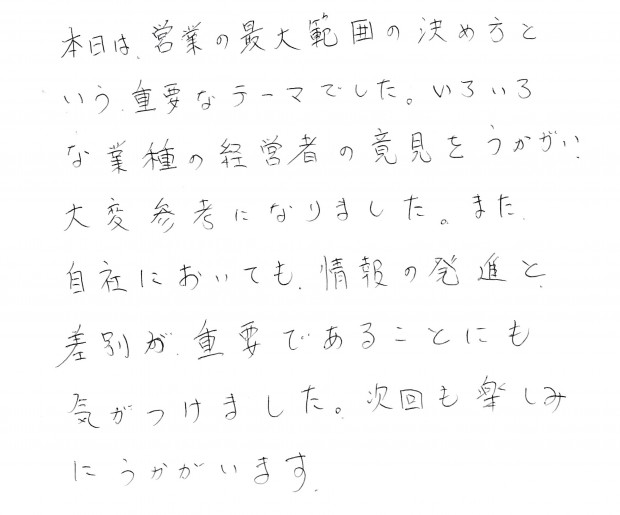 本日は、営業の最大範囲の決め方と
いう、重要なテーマでした。いろいろ
な業種の経営者の意見をうかがい、
大変参考になりました。また、
自社においても、情報の発進と、
差別が、重要であることにも
気がつけました。次回も楽しみ
にうかがいます。